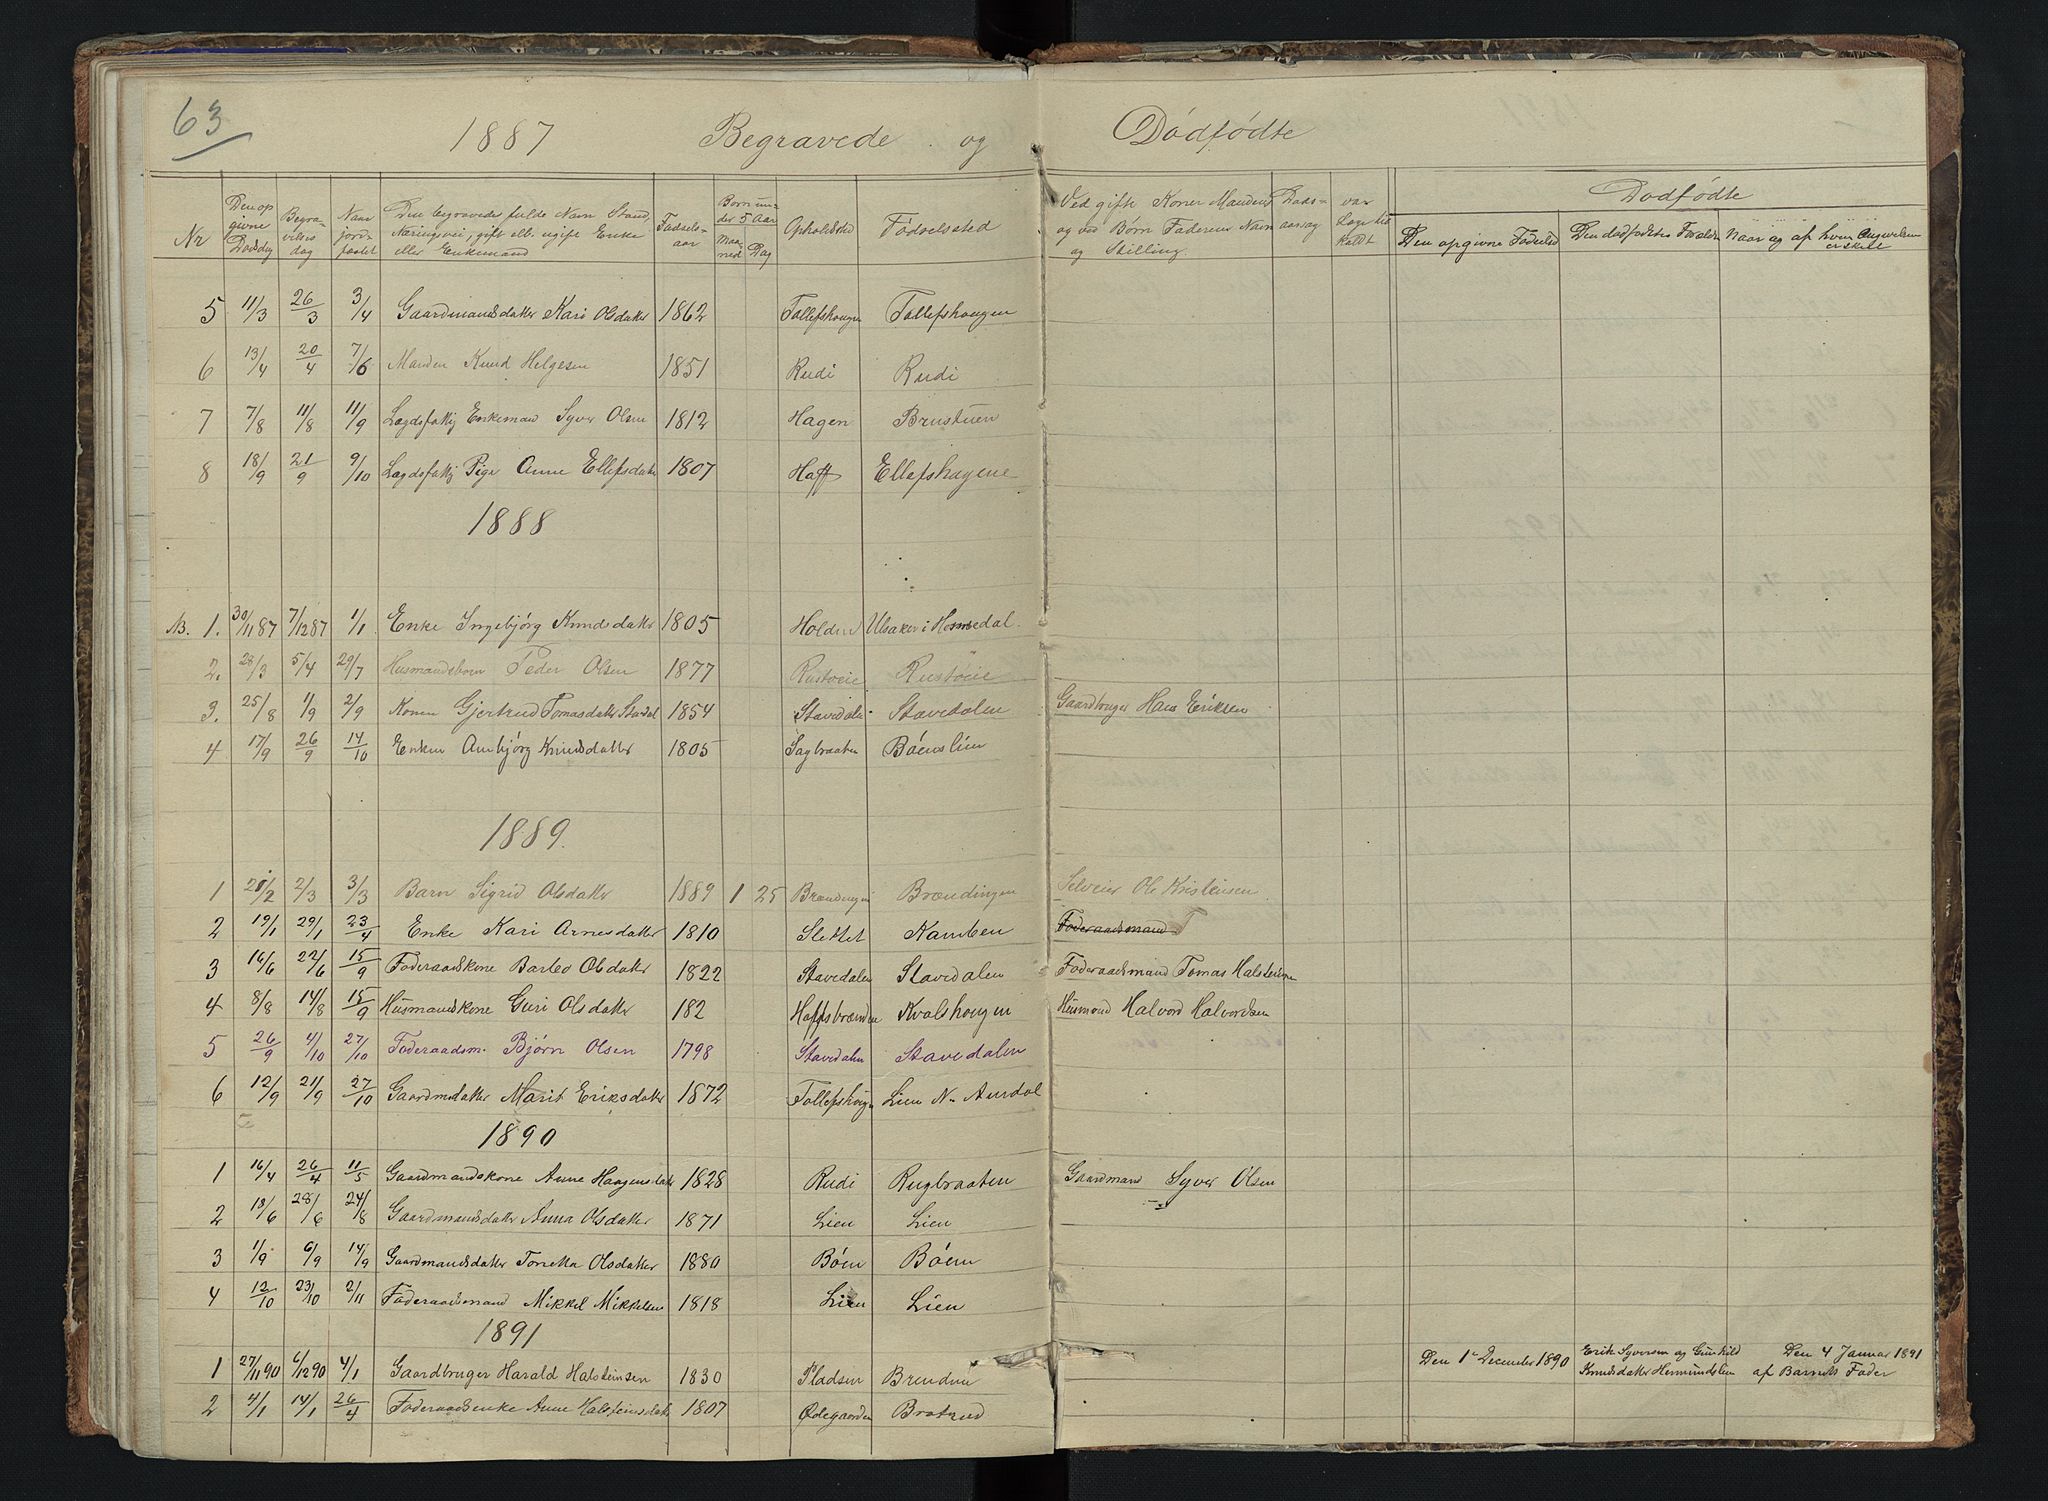 63
1887 Begravede og Dödfödte
Nr Den op givne Dødsdag Begra- velses dag Naar jords- fæstet Den Begravedes fulde Navn Stand, Næringsvei, gift ell. ugift Enke eller Enkemand Fødsels- aar Børn un- der 5 Aar Maa- ned Dag Opholdsted Födselssted Ved gifte Koner Mandens og ved Børn Faderens Navn og Stilling. Døds- aarsag var Læge til kaldt Dødfødte Den opgivne Fødselstid Den dødfødtes Forældre Naar og af hvem Anmeldelsen er skeet
5 11/3 26/3 3/4 Gaardmandsdatter Kari Olsdatter 1862 Tollefshougen Tollefshougen
6 13/4 20/4 7/6 Manden Knud Helgesen 1851 Rudi Rudi
7 7/8 11/8 11/9 Lægdsfattig Enkemand Syver Olsen 1812 Hagen Brustuen
8 18/9 21/9 9/10 Lægdsfattig Pige Anne Ellefsdatter 1807 Haff Ellefshagene
1888
No. 1. 30/11 87 7/12 87 1/1 Enke Ingebjörg Knudsdatter 1805 Holden Ulsaker i Hemsedal.
2. 28/3 5/4 29/7 Husmandsbarn Peder Olsen 1877 Rustöeie Rustöeie
3. 25/8 1/9 2/9 Konen Gjertrud Tomasdatter 1854 Stavedalen Stavedalen Gaardbruger Hans Eriksen
4 17/9 26/9 14/10 Enken Anbjörg Knudsdatter 1805 Sagbraaten Böenslien
1889.
1 21/2 2/3 3/3 Barn Sigrid Olsdatter 1889 1 25 Brændingen Brændingen Selveier Ole Kristensen
2 19/1 29/1 23/4 Enke Kari Arnesdatter 1810 Slettet Kamben Föderaadsmand T
3 16/6 22/6 15/9 Föderaadskone Barbro Olsdatter 1822 Stavedalen Stavedalen Föderaadsmand Tomas Halsteinsen
4 8/8 14/8 15/9 Husmandskone Guri Olsdatter 182 Haffsbrænden Kvalshougen Husmand Halvord Halvordsen
5 26/9 4/10 27/10 Föderaadsm. Bjørn Olsen 1798 Stavedalen Stavedalen
6 12/9 21/9 27/10 Gaardmsdatter Marit Eriksdatter 1872 Tollefshougen Lien N. Aurdal
1890
1 16/4 26/4 11/5 Gaardmandskone Anne Haagensdatter 1828 Rudi Rugbraaten Gaardmand Syver Olsen
2 18/6 28/6 24/8 Gaardmandsdatter Anna Olsdatter 1871 Lien Lien
3 1/9 6/9 14/9 Gaardmandsdatter Olsdatter 1880 Böen Böen
4 12/10 23/10 2/11 Föderaadsmand Mikkel Mikkelsen 1818 Lien Lien
1891
1 27/11 90 6/12 90 4/1 Gaardbruger Harald Halsteinsen 1830 Pladsen Brenden Den 1ste December 1890 Erik Syversen og Gunhild Knudsdatter Hermundslien Den 4 Januar 1891 af Barnets Fader
2 4/1 14/1 26/4 Föderaadsenke Anne Halsteinsdatter 1807 Ødegaarden Bratrud